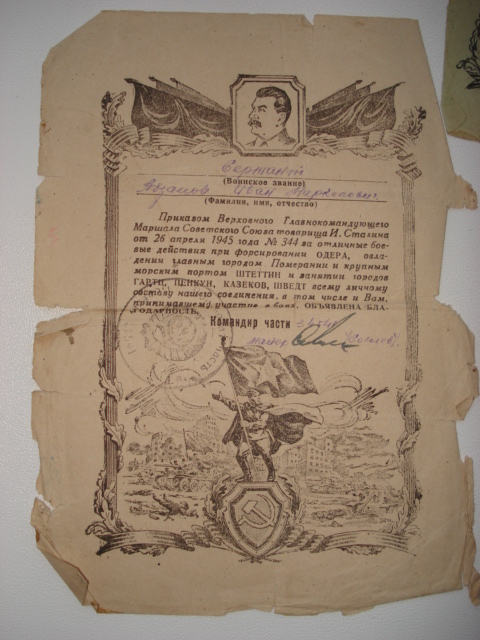 Сержант
(Воинское звание)
Иван Маркелович
(Фамилия, имя, отчество)
Приказом Верховного Главнокомандующего
Маршала Советского Союза товарища И. Сталина
от 26 апреля 1945 года № 344 за отличные бое-
вые действия при форсировании ОДЕРА, овла-
дении главным городом Померании и крупным
морским портом ШТЕТТИН и занятии городов
ГАРТЦ, ПЕНКУН, КАЗЕКОВ, ШВЕДТ всему личному
составу нашего соединения, в том числе и Вам,
принимавшему участие в боях, ОБЪЯВЛЕНА БЛА-
ГОДАРНОСТЬ.
Командир части
майор